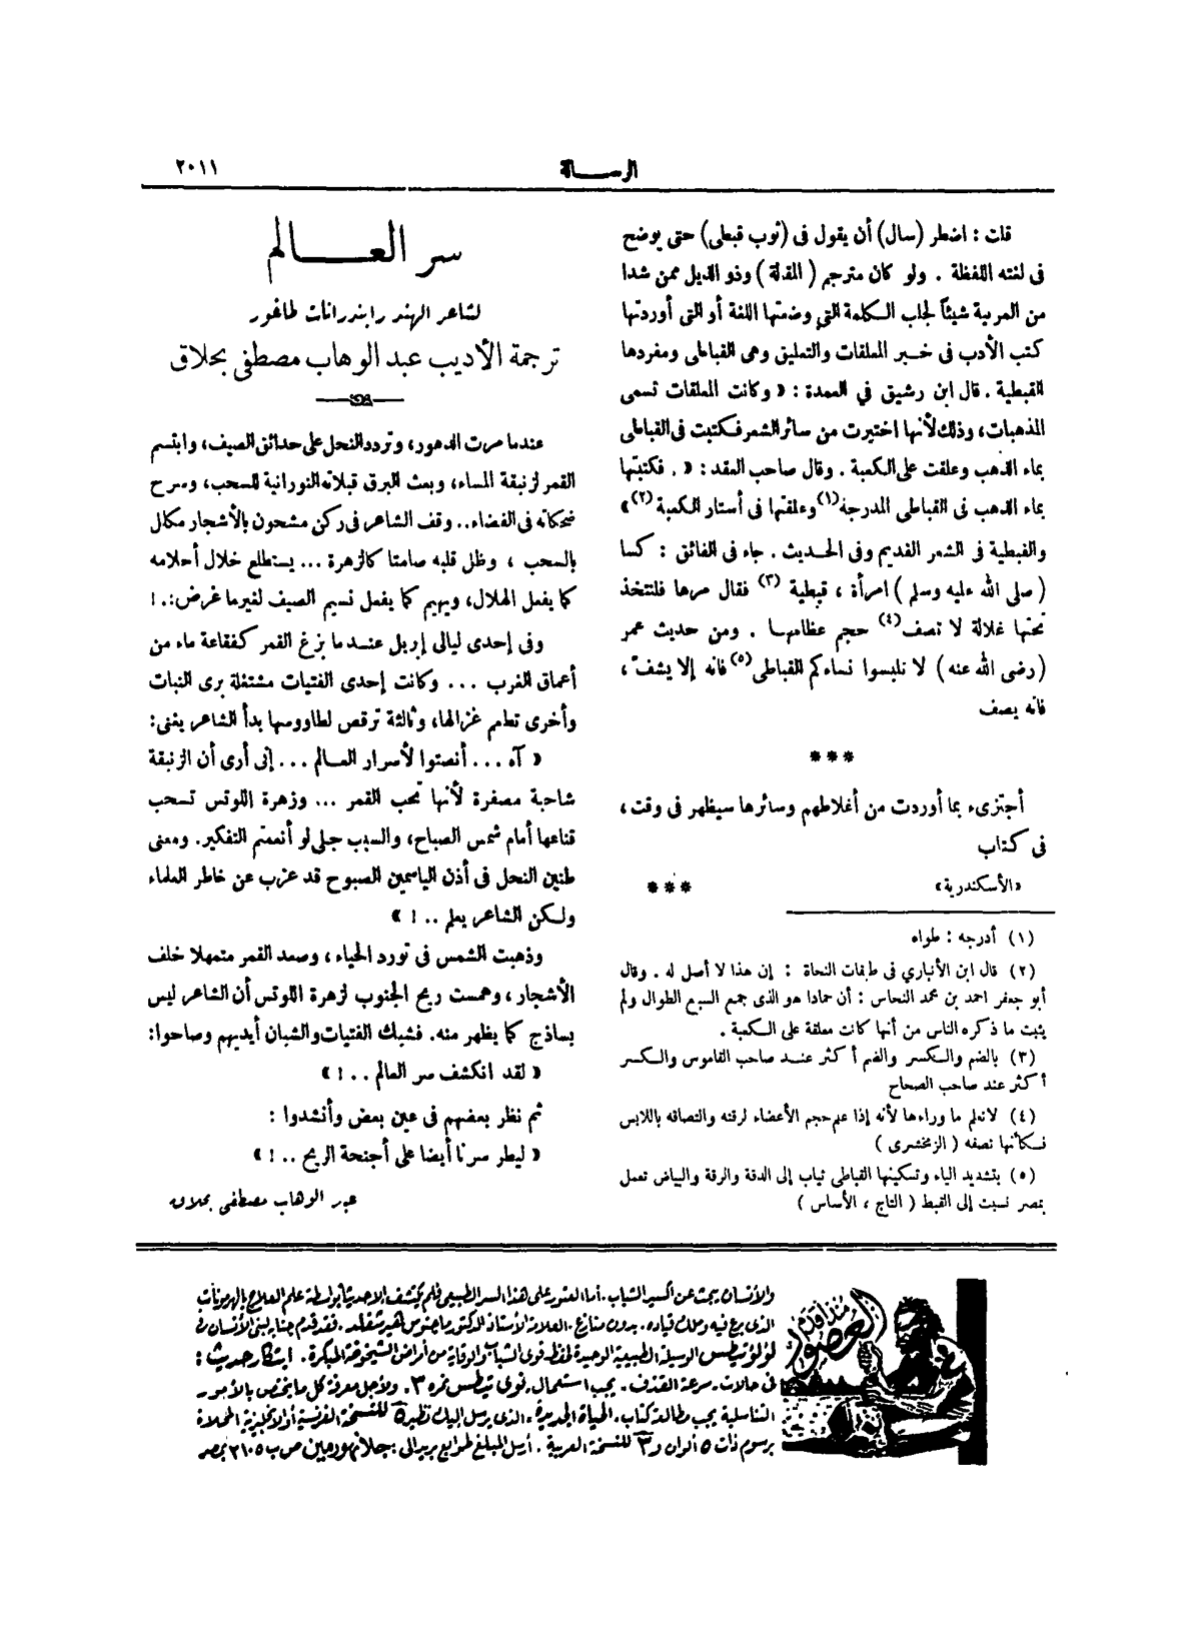 الرسالة
٢٠١١
قلت : اضطر (سال) أن يقول فى (ثوب قبطى) حتى يوضح
فى لغته اللفظة . ولو كان مترجم ( المقالة ) وذو الذيل ممن شدا
من العربية شيئاً لجلب الكلمة التى وضعتها اللغة أو التى أوردتها
كتب الأدب فى خبر المعلقات والتعليق وهى القباطى ومفردها
القبطية . قال ابن رشيق في العمدة : « وكانت المعلقات تسمى
المذهبات، وذلك لأنها اختيرت من سائر الشعر فكتبت فى القباطى
بماء الذهب وعلقت على الكعبة . وقال صاحب العقد : « . فكتبتها
بماء الذهب فى القباطى المدرجة(١) وعلقتها فى أستار الكعبة (٢) »
والقبطية فى الشعر القديم وفى الحديث . جاء فى الفائق : كسا
( صلى الله عليه وسلم ) امرأة ، قبطية (٣) فقال مرها فلتتخذ
تحتها غلالة لا تصف(٤) حجم عظامها . ومن حديث عمر
( رضى الله عنه ) لا تلبسوا نساءكم القباطى(٥) فانه إلا يشفّ ،
فانه يصف
***
أجتزىء بما أوردت من أغلاطهم وسائرها سيظهر فى وقت ،
فى كتاب
«الأسكندرية» ***
(١) أدرجه : طواه
(٢) قال ابن الأنباري فى طبقات النحاة : إن هذا لا أصل له . وقال
أبو جعفر احمد بن محمد النحاس : أن حمادا هو الذى جمع السبع الطوال ولم
يثبت ما ذكره الناس من أنها كانت معلقة على الكعبة .
(٣) بالضم والكسر والضم أكثر عند صاحب القاموس والكسر
أكثر عند صاحب الصحاح
(٤) لانعلم ما وراءها لأنه إذا علم حجم الأعضاء لرقته والتصاقه باللابس
فكأنها تصفه ( الزمخشرى )
(٥) بتشديد الياء وتسكينها القباطى ثياب إلى الدقة والرقة والبياض تعمل
بمصر نسبت إلى القبط ( التاج ، الأساس )
سر العالم
لشاعر الهند رابندرانات طاغور
ترجمة الأديب عبد الوهاب مصطفى بحلاق
عندما مرت الدهور، وتردد النحل على حدائق الصيف، وابتسم
القمر لزنبقة المساء، وبعث البرق قبلاته النورانية للسحب، ومرح
ضحكاته فى الفضاء.. وقف الشاعر فى ركن مشحون بالأشجار مكلل
بالسحب ، وظل قلبه صامتا كالزهرة ... يستطلع خلال أحلامه
كما يفعل الهلال، ويهيم كما يفعل نسيم الصيف لغير ما غرض .. !
وفى إحدى ليالى إبريل عندما بزغ القمر كفقاعة ماء من
أعماق الغرب ... وكانت إحدى الفتيات مشتغلة برى النبات
وأخرى تطعم غزالها، وثالثة ترقص لطاووسها بدأ الشاعر يغنى:
« آه ... أنصتوا لأسرار العالم ... إنى أرى أن الزنبقة
شاحبة مصفرة لأنها تحب القمر ... وزهرة اللوتس تسحب
قناعها أمام شمس الصباح، والسبب جلى لو أنعمتم التفكير. ومعنى
طنين النحل فى أذن الياسمين الصبوح قد عزب عن خاطر العلماء
ولكن الشاعر يعلم .. ! »
وذهبت الشمس فى تورد الحياء ، وصعد القمر متمهلا خلف
الأشجار ، وهمست ريح الجنوب لزهرة اللوتس أن الشاعر ليس
بساذج كما يظهر منه. فشبك الفتيات والشبان أيديهم وصاحوا:
« لقد انكشف سر العالم .. ! »
ثم نظر بعضهم فى عين بعض وأنشدوا :
« ليطر سرنا أيضا على أجنحة الريح .. ! »
عبد الوهاب مصطفى بحلاق
منذ أقدم العصور
والأنسان يبحث عن أكسير الشباب . أما العثور على هذا السر الطبيعى فلم يكتشف إلا حديثا بواسطة علم العلاج بالهرمونات
الذى برع فيه وملك قياده . بدون منازع . العلامة الأستاذ الدكتور ماجنوس هيرشفلد . فقد قدم جنابه لبنى الأنسان فى
لؤلؤ تيطس الوسيلة الطبيعية الوحيدة لحفظ قوى الشباب والوقاية من أمراض الشيخوخة المبكرة . ابتكار حديث :
فى حالات . سرعة القذف . يجب استعمال . لؤلؤ تيطس نمره ٣ . ولأجل معرفة كل ما يختص بالأمور .
التناسلية يجب مطالعة كتاب . الحياة الجديدة . الذى يرسل اليك نظير ٥ للنسخة الفرنسية أو الانجليزية المحلاة
برسوم ذات ٥ ألوان و ٣ للنسخة العربية . أرسل المبلغ طوابع بريد الى : جلانهورمين ص ب ٢١٠٥ مصر